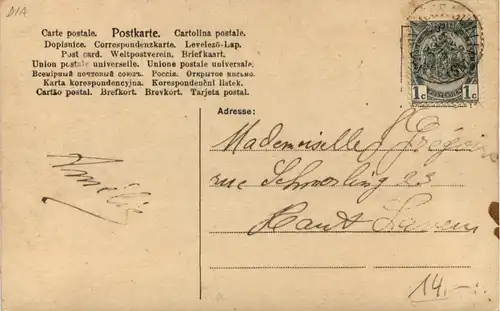 D1A
Carte postale. Postkarte. Cartolina postale.
Dopisnice. Correspondenzkarte. Levelező-Lap.
Post card. Weltpostverein. Briefkaart.
Union postale universelle. Unione postale universale.
Всемірный почтовый союзъ. Россія. Открытое письмо.
Karta korespondencyjna. Korespondenční listek.
Cartão postal. Brefkort. Brevkort. Tarjeta postal.
1c 1c
Adresse:
Mademoiselle
rue Schmerling 23
Haut
Amélie
14.-